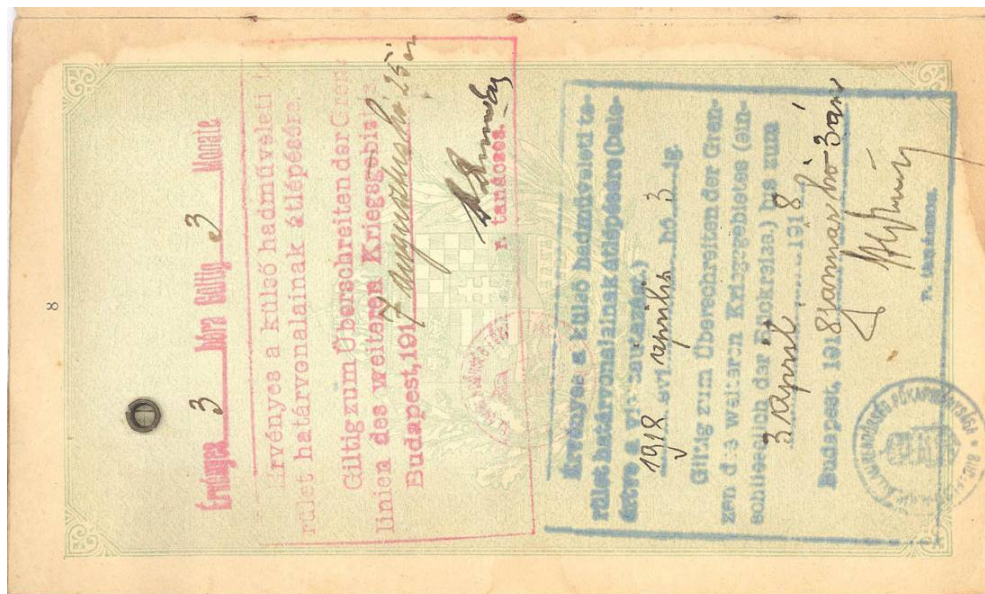 8
Érvényes 3 hóra Gültig 3 Monate
Érvényes a külső hadműveleti te
rület határvonalainak átlépésére.
Giltig zum Überschreiten der Gren:
linien des weiteren Kriegsgebietes
Budapest, 1917 augusztus hó 25 én
r. tanácsos.
Érvényes a külső hadműveleti te-
rület határvonalainak átlépésére (bele-
értve a
1918 évi április hó 3 ig.
Giltig zum Überechreiten der Gren-
zen des weiteren Krieggebietes (ein-
schliesslich der
bis zum
3 April 1918
Budapest, 1918 januar hó 3 án
r. tanácsos.